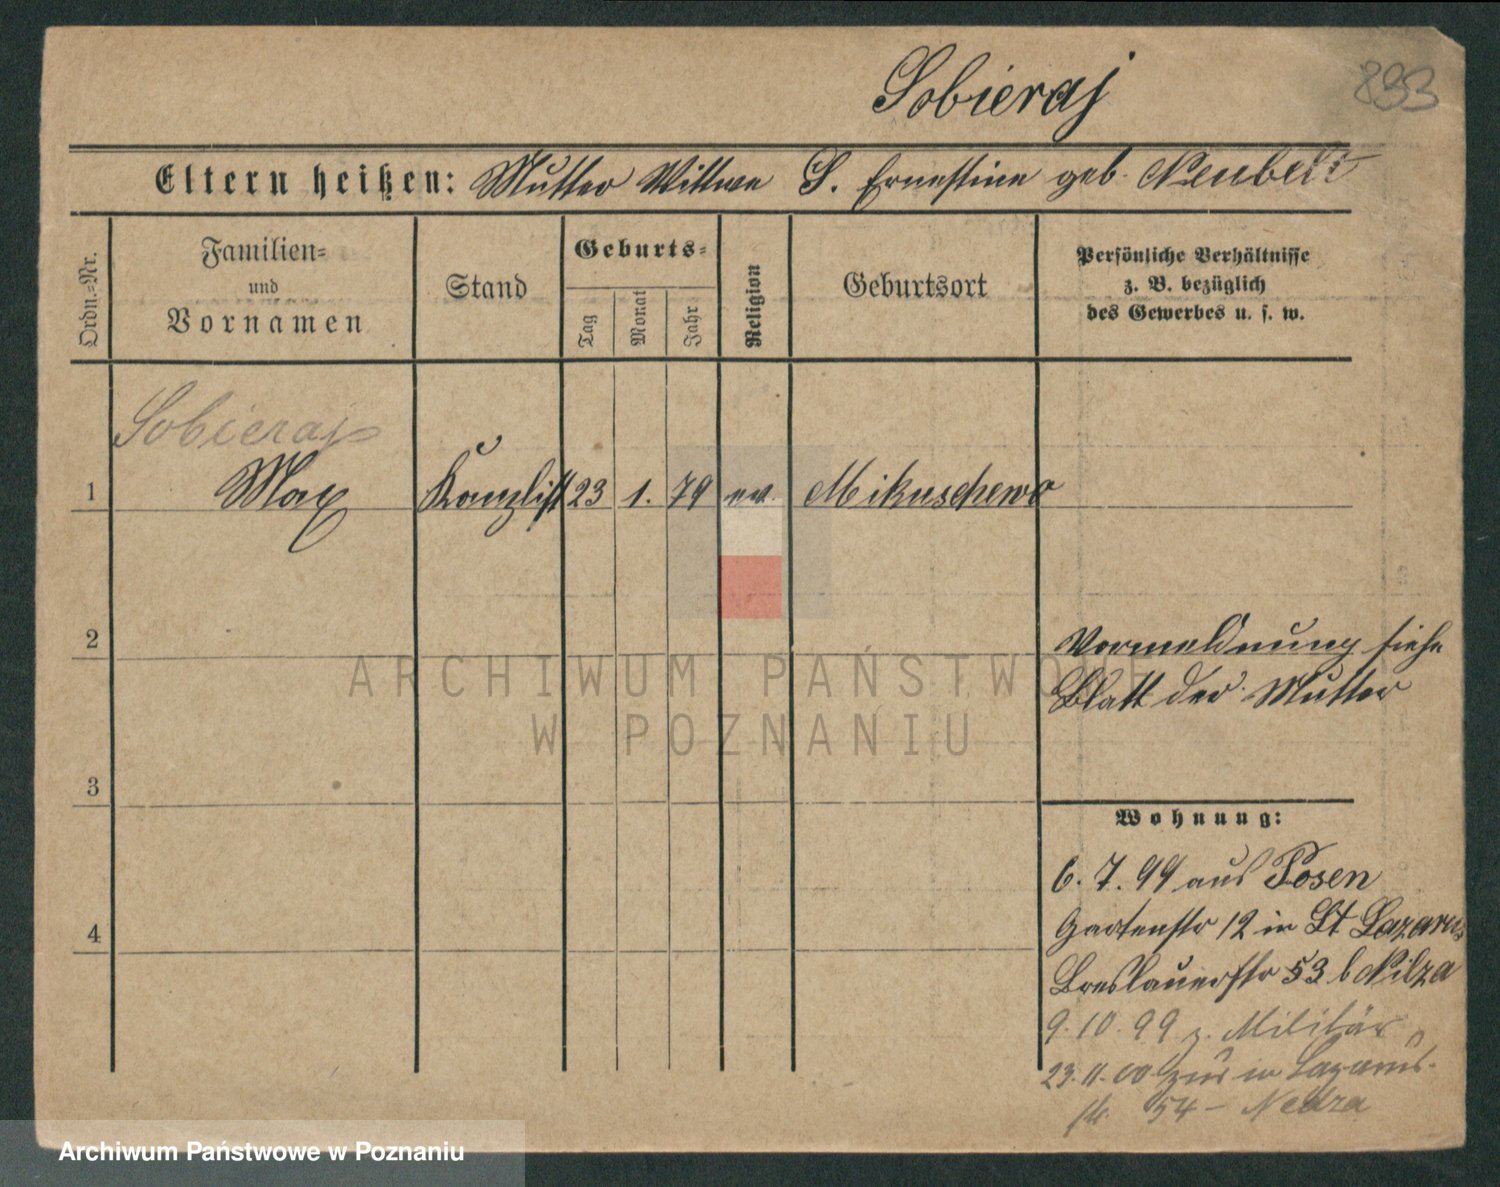 Sobieraj
833
Eltern heißen: Mutter Wittwe S. Ernestine geb. Neubelt
Ordn.=Nr.
Familien=
und
Vornamen
Stand
Geburts=
Tag
Monat
Jahr
Religion
Geburtsort
Persönliche Verhältnisse
z. B. bezüglich
des Gewerbes u. s. w.
Sobieraj
1 Max Kanzlist 23 1. 79 ev. Mikuschewo
2
Vormeldnung siehe
Blatt der Mutter
3
Wohnung:
6. 7. 99 aus Posen
Gartenstr 12 in St Lazarus
4
Breslauerstr 53 b
9. 10. 99 z. Militär
23. 11. 00 zur in Lazarus-
str. 54 -
ARCHIWUM PAŃSTWOWE
W POZNANIU
Archiwum Państwowe w Poznaniu